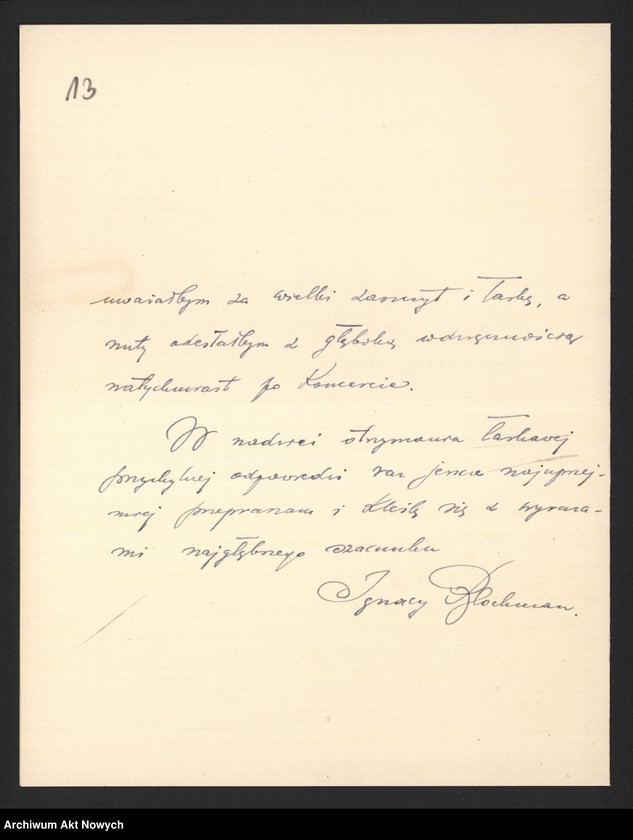 13
uważałbym za wielki zaszczyt i łaskę, a
nuty odesłałbym z głęboką wdzięcznością
natychmiast po Koncercie.
W nadziei otrzymania łaskawej
przychylnej odpowiedzi raz jeszcze najuprzej-
miej przepraszam i kreślę się z wyraza-
mi najgłębszego szacunku
Ignacy Blochman.
Archiwum Akt Nowych